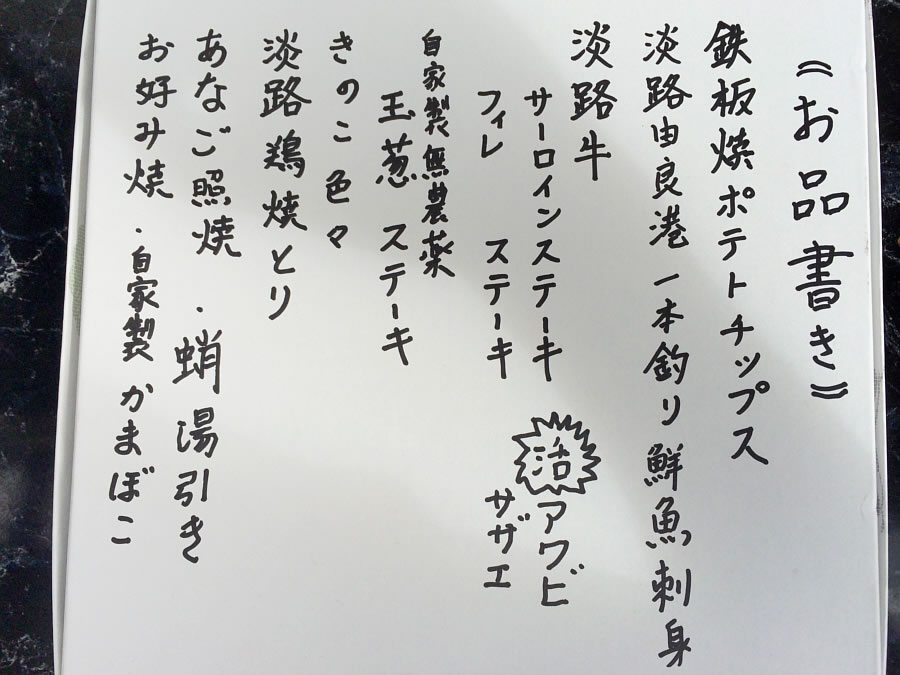 《お品書き》
鉄板焼ポテトチップス
淡路由良港 一本釣り 鮮魚刺身
淡路牛
サーロインステーキ
フィレ ステーキ
活アワビ
サザエ
自家製無農薬
玉葱 ステーキ
きのこ 色々
淡路鶏焼とり
あなご照焼 ・蛸湯引き
お好み焼 ・自家製かまぼこ